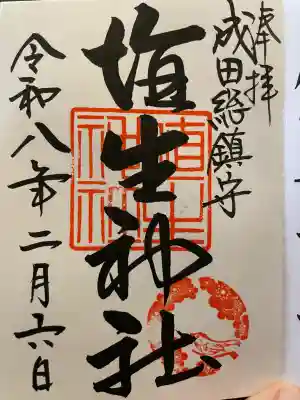 奉拝
成田総鎮守
埴生神社
令和八年二月六日